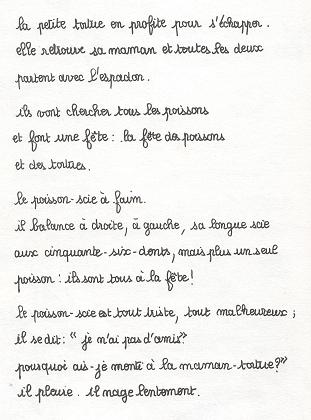 la petite tortue en profite pour s'échapper.
elle retrouve sa maman et toutes les deux
partent avec l'espadon.
ils vont chercher tous les poissons
et font une fête : la fête des poissons
et des tortues.
le poisson-scie à faim.
il balance à droite, à gauche, sa longue scie
aux cinquante-six-dents, mais plus un seul
poisson : ils sont tous à la fête !
le poisson-scie est tout triste, tout malheureux ;
il se dit : " je n'ai pas d'amis"
pourquoi ais-je menti à la maman-tortue ?"
il pleure. il nage lentement.